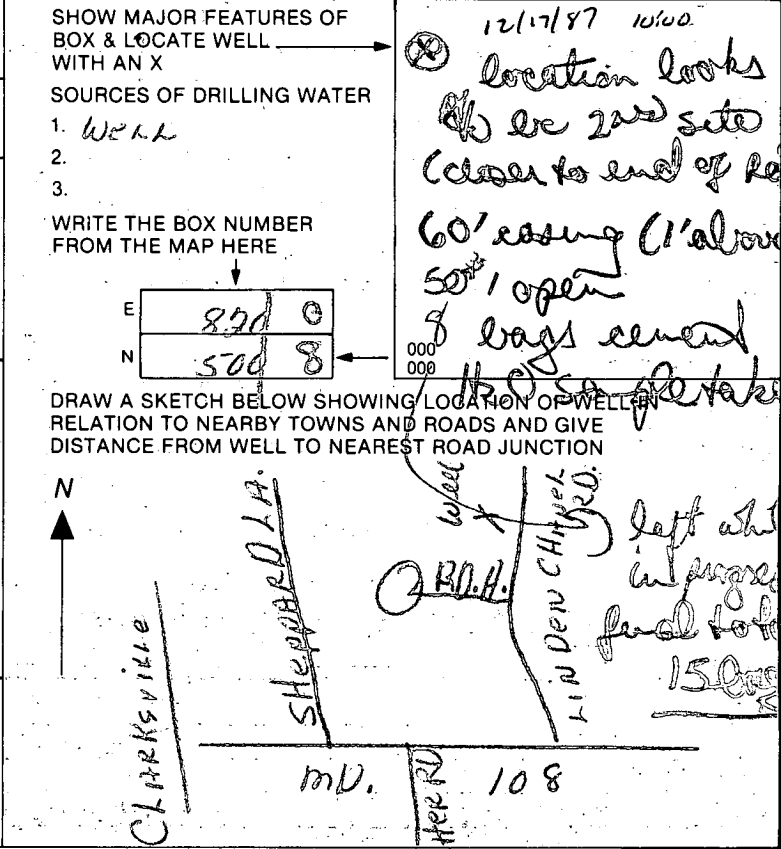 SHOW MAJOR FEATURES OF
BOX & LOCATE WELL
WITH AN X
SOURCES OF DRILLING WATER
1. WELL
2.
3.
WRITE THE BOX NUMBER
FROM THE MAP HERE
E 820 0
N 506 8
000
000
12/17/87 10:00
X
location looks
2nd site
(closer to end of
60' casing (1' above
50' open
8 bags cement
H2O sample take
DRAW A SKETCH BELOW SHOWING LOCATION OF WELL IN
RELATION TO NEARBY TOWNS AND ROADS AND GIVE
DISTANCE FROM WELL TO NEAREST ROAD JUNCTION
N
CLARKSVILLE
SHEPPARD LA.
well
X
RD. A.
LINDEN CHAPEL
RD.
left whi
in
15
MD. 108
HER RD